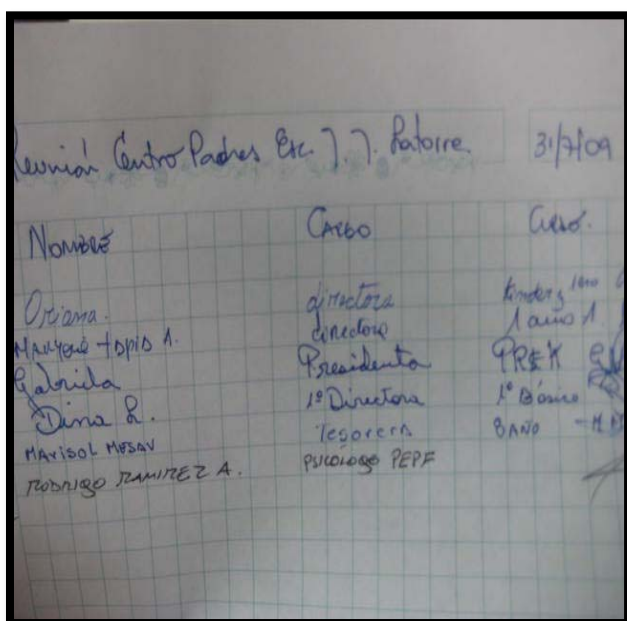 Reunión Centro Padres Esc. J. J. Latorre. 31/7/09
Nombre Cargo Curso.
Oriana. directora Kinder y 1ero
tapia A. directora 1 año A
Gabriela Presidenta PREK
Dina L. 1º Directora 1º Básico
MARISOL MESAV Tesorera 8 AÑO
RODRIGO RAMIREZ A. PSICÓLOGO PEPF